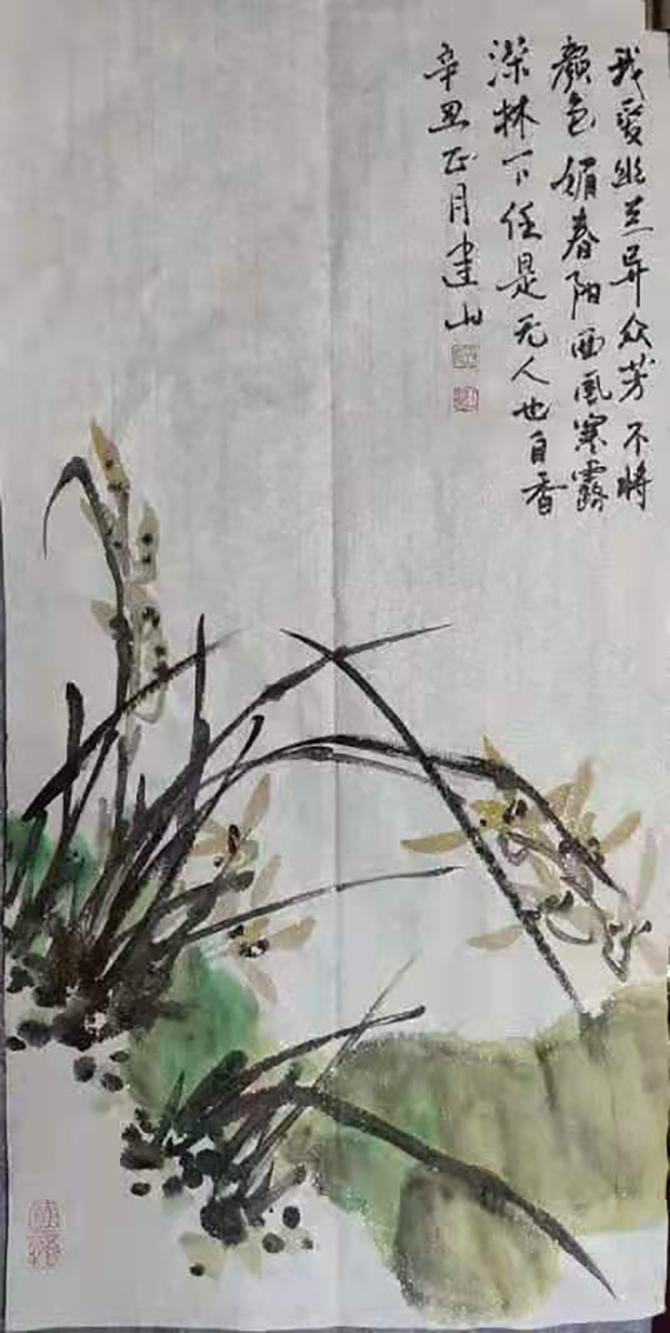 我爱幽兰异众芳不将
颜色媚春阳西风寒露
深林下任是无人也自香
辛丑正月建山